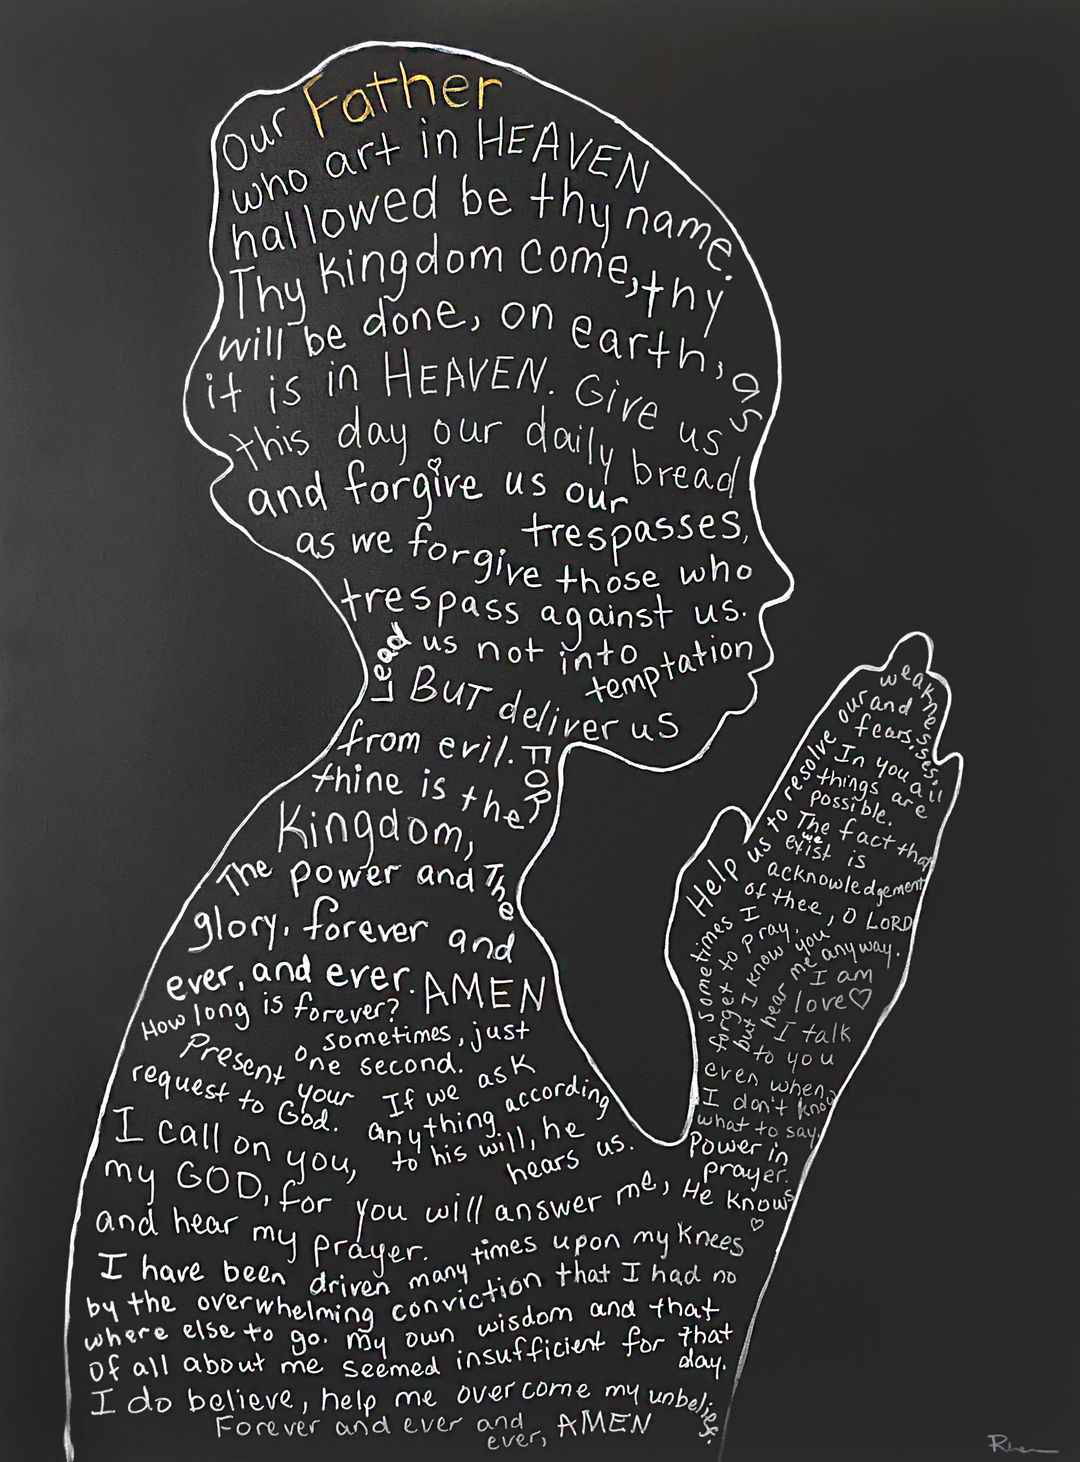 Our Father
who art in HEAVEN
hallowed be thy name.
Thy Kingdom come, thy
will be done, on earth, as
it is in HEAVEN. Give us
this day our daily bread
and forgive us our
trespasses,
as we forgive those who
trespass against us.
Lead us not into
temptation
BUT deliver us
from evil. FOR
thine is the
Kingdom,
The power and The
glory. forever and
ever, and ever. AMEN
How long is forever?
sometimes, just
one second.
Present your
request to God.
If we ask
anything according
to his will, he
hears us.
I call on you,
my GOD, for you will answer me,
and hear my prayer.
He knows
I have been driven many times upon my knees
by the overwhelming conviction that I had no
where else to go. my own wisdom and that
of all about me seemed insufficient for that
day.
I do believe, help me overcome my unbelief.
Forever and ever and
ever, AMEN
Help us to resolve our and
weaknesses.
fears,
In you all
things are
possible.
The fact that
we
exist is
acknowledgement
of thee, O LORD
sometimes I
forget to pray.
but I know you
hear me anyway.
I am
love
I talk
to you
even when
I don't know
what to say.
Power in
prayer.